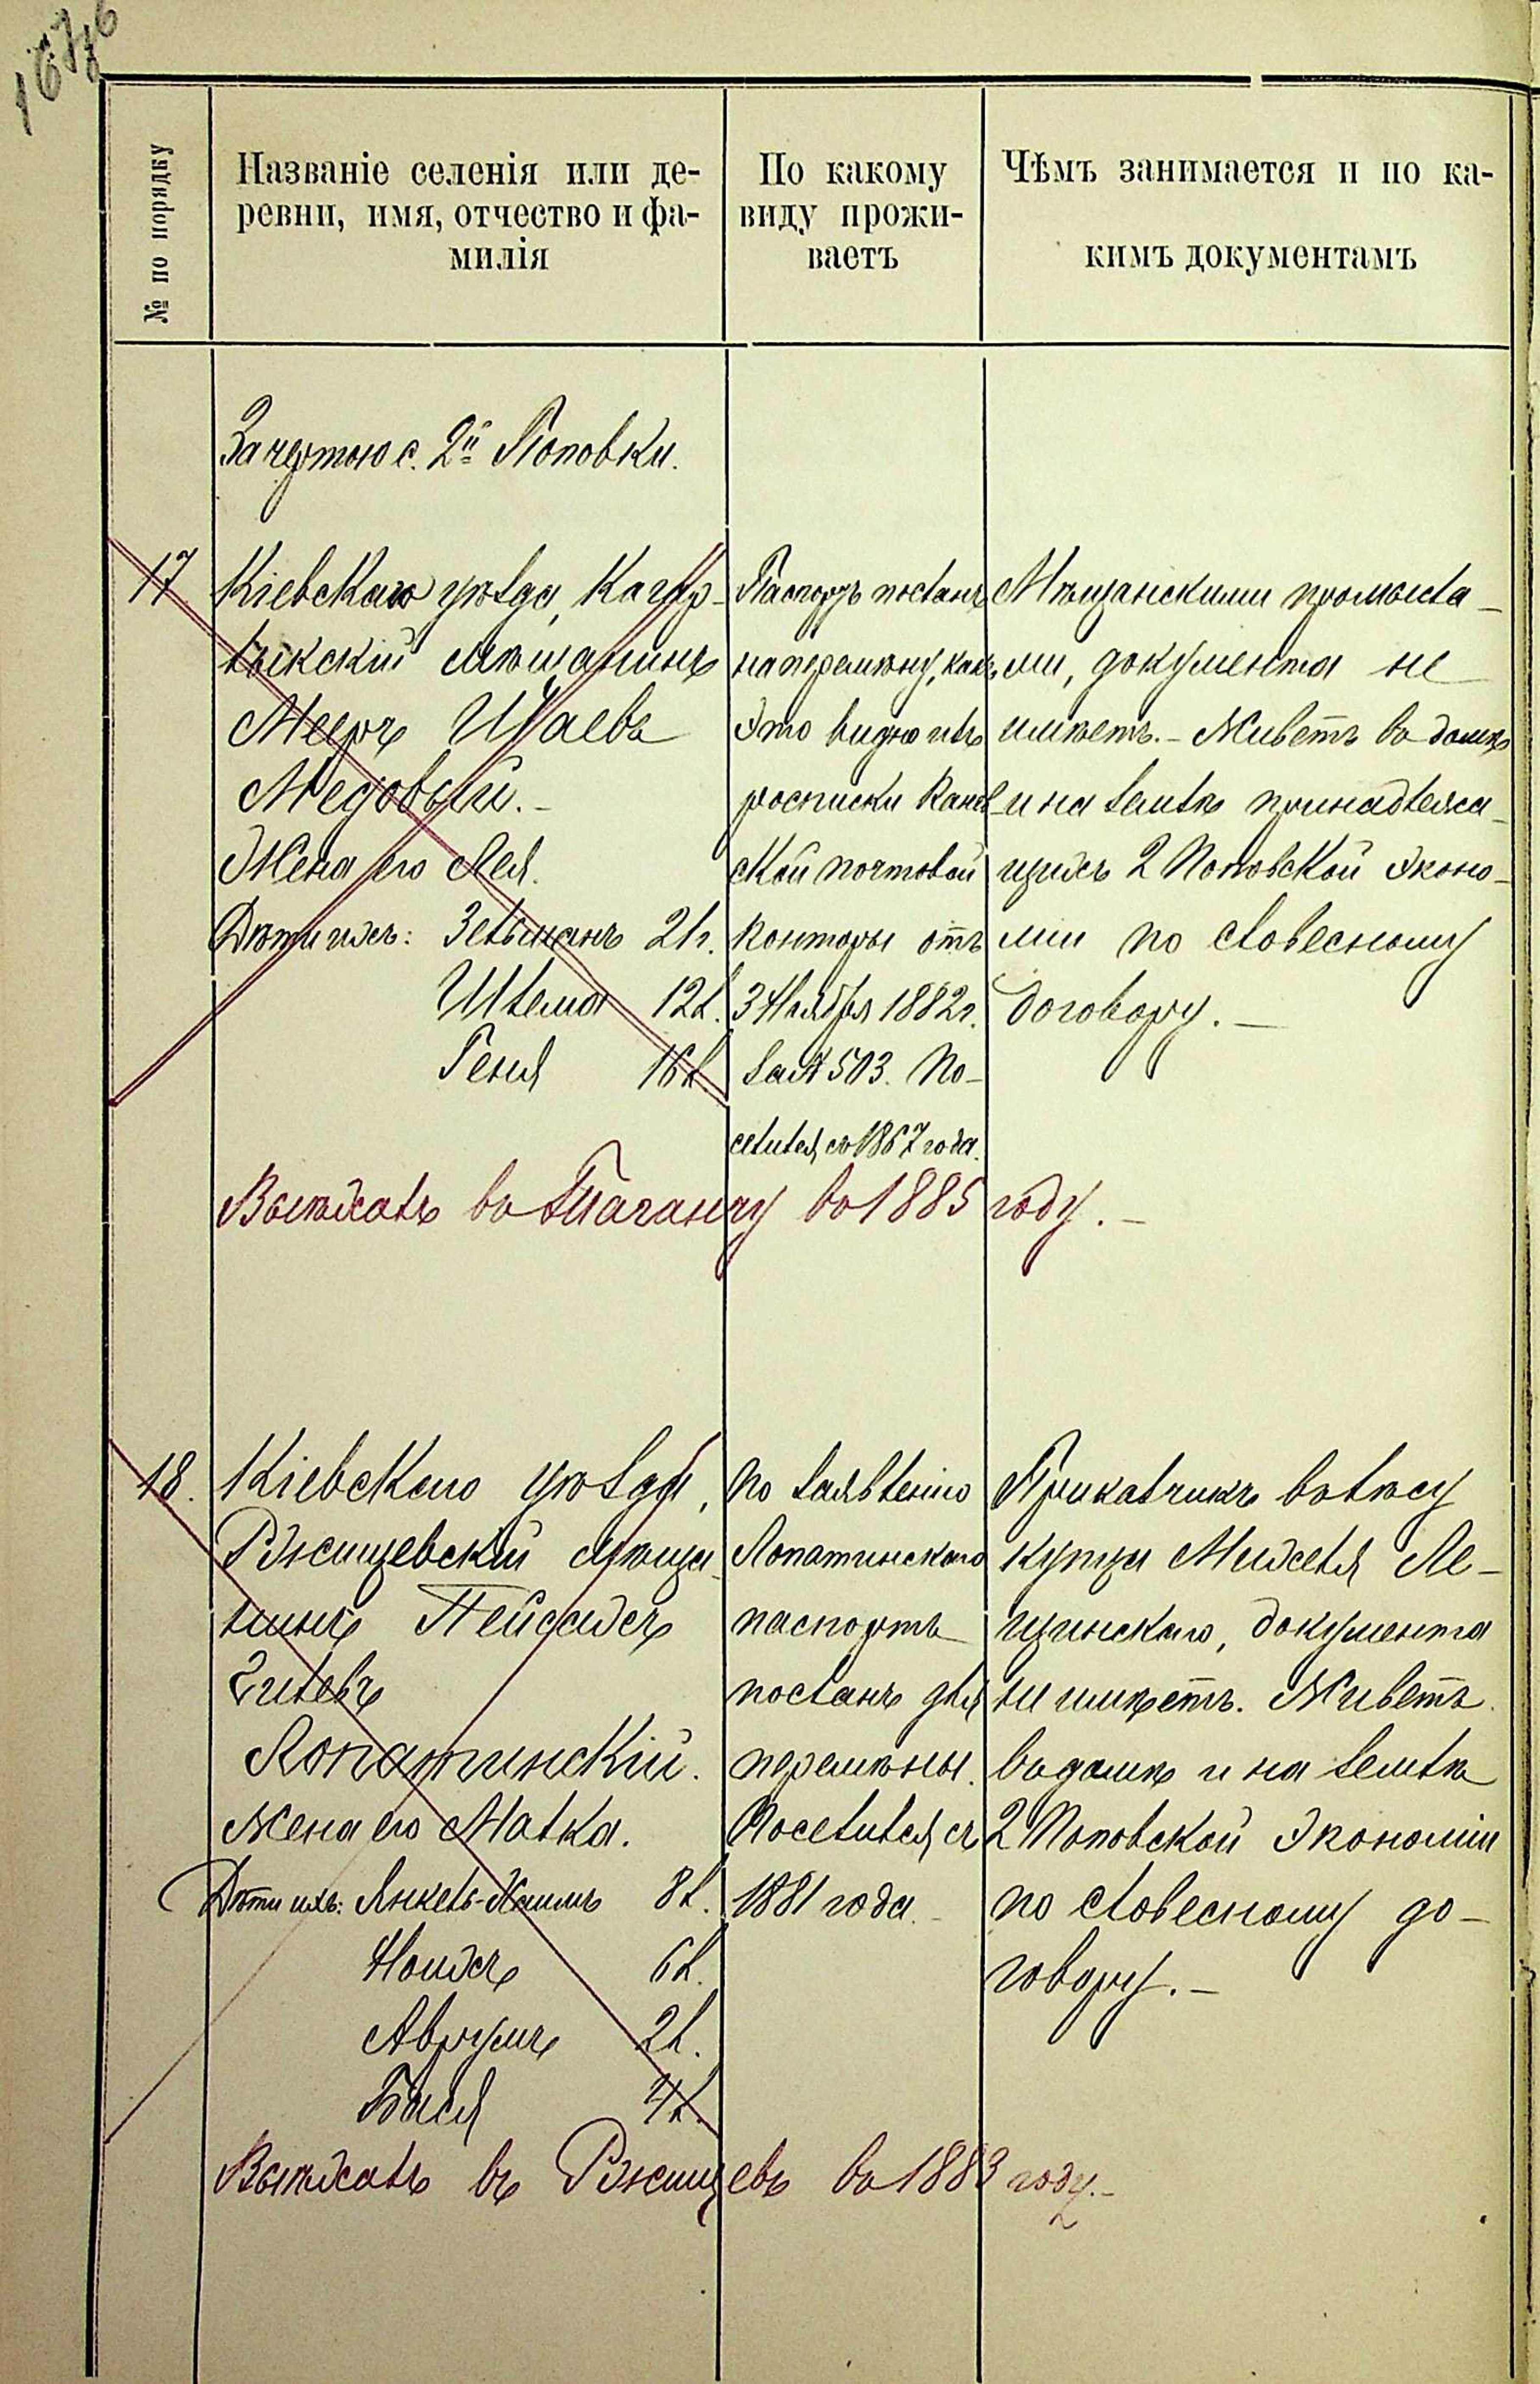 № по порядку
Названіе селенія или де-
ревни, имя, отчество и фа-
милія
По какому
виду прожи-
ваетъ
Чѣмъ занимается и по ка-
кимъ документамъ
За чертою с. 2й Поповки.
17
Кіевскаго уѣзда, Кагар-
лыкскій мѣщанинъ
Мееръ Шаевъ
Медовый.-
Жена его Лея.
Дѣти ихъ: Зельманъ 21г.
Шлема 12л.
Геня 16л.
Паспортъ посланъ
на перемѣну, какъ
это видно изъ
росписки Канев-
ской почтовой
конторы отъ
3 Ноября 1882г.
за № 503. По-
селился съ 1867 года.
Мѣщанскими промысла-
ми, документа не
имѣетъ.- Живетъ въ домѣ
и на землѣ принадлежа-
щихъ 2 Поповской эконо-
міи по словесному
договору.-
Выѣхалъ въ Таганчу въ 1885 году.-
18.
Кіевскаго уѣзда,
Ржищевскій мѣща-
нинъ Пейсахъ
Зилевъ
Лопатинскій.
Жена его Малка.
Дѣти ихъ: Янкель-Хаимъ 8л.
Ноихъ 6л.
Аврумъ 2л.
Бася 4л.
По заявленію
Лопатинскаго
паспортъ
посланъ для
перемѣны.
Поселился съ
1881 года.-
Прикащикъ въ лѣсу
купца Михеля Ле-
щинскаго, документа
не имѣетъ. Живетъ
въ домѣ и на землѣ
2 Поповской экономіи
по словесному до-
говору.-
Выѣхалъ въ Ржищевъ въ 1883 году.-